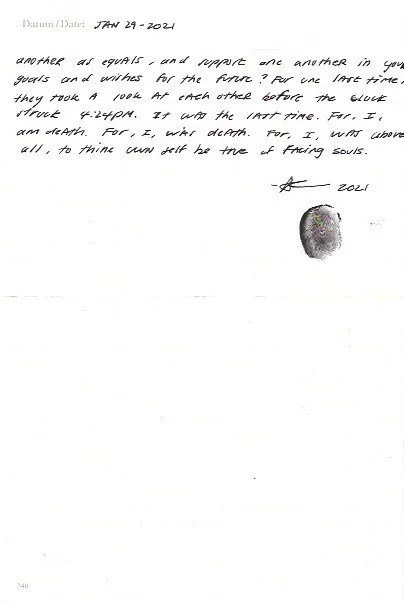 Datum / Date: JAN 29-2021
another as equals, and support one another in your
goals and wishes for the future? For one last time,
they took a look at each other before the clock
struck 4:24pm. It was the last time. For, I,
am death. For, I, was death. For, I, was above
all, to thine own self be true of facing souls.
2021
240